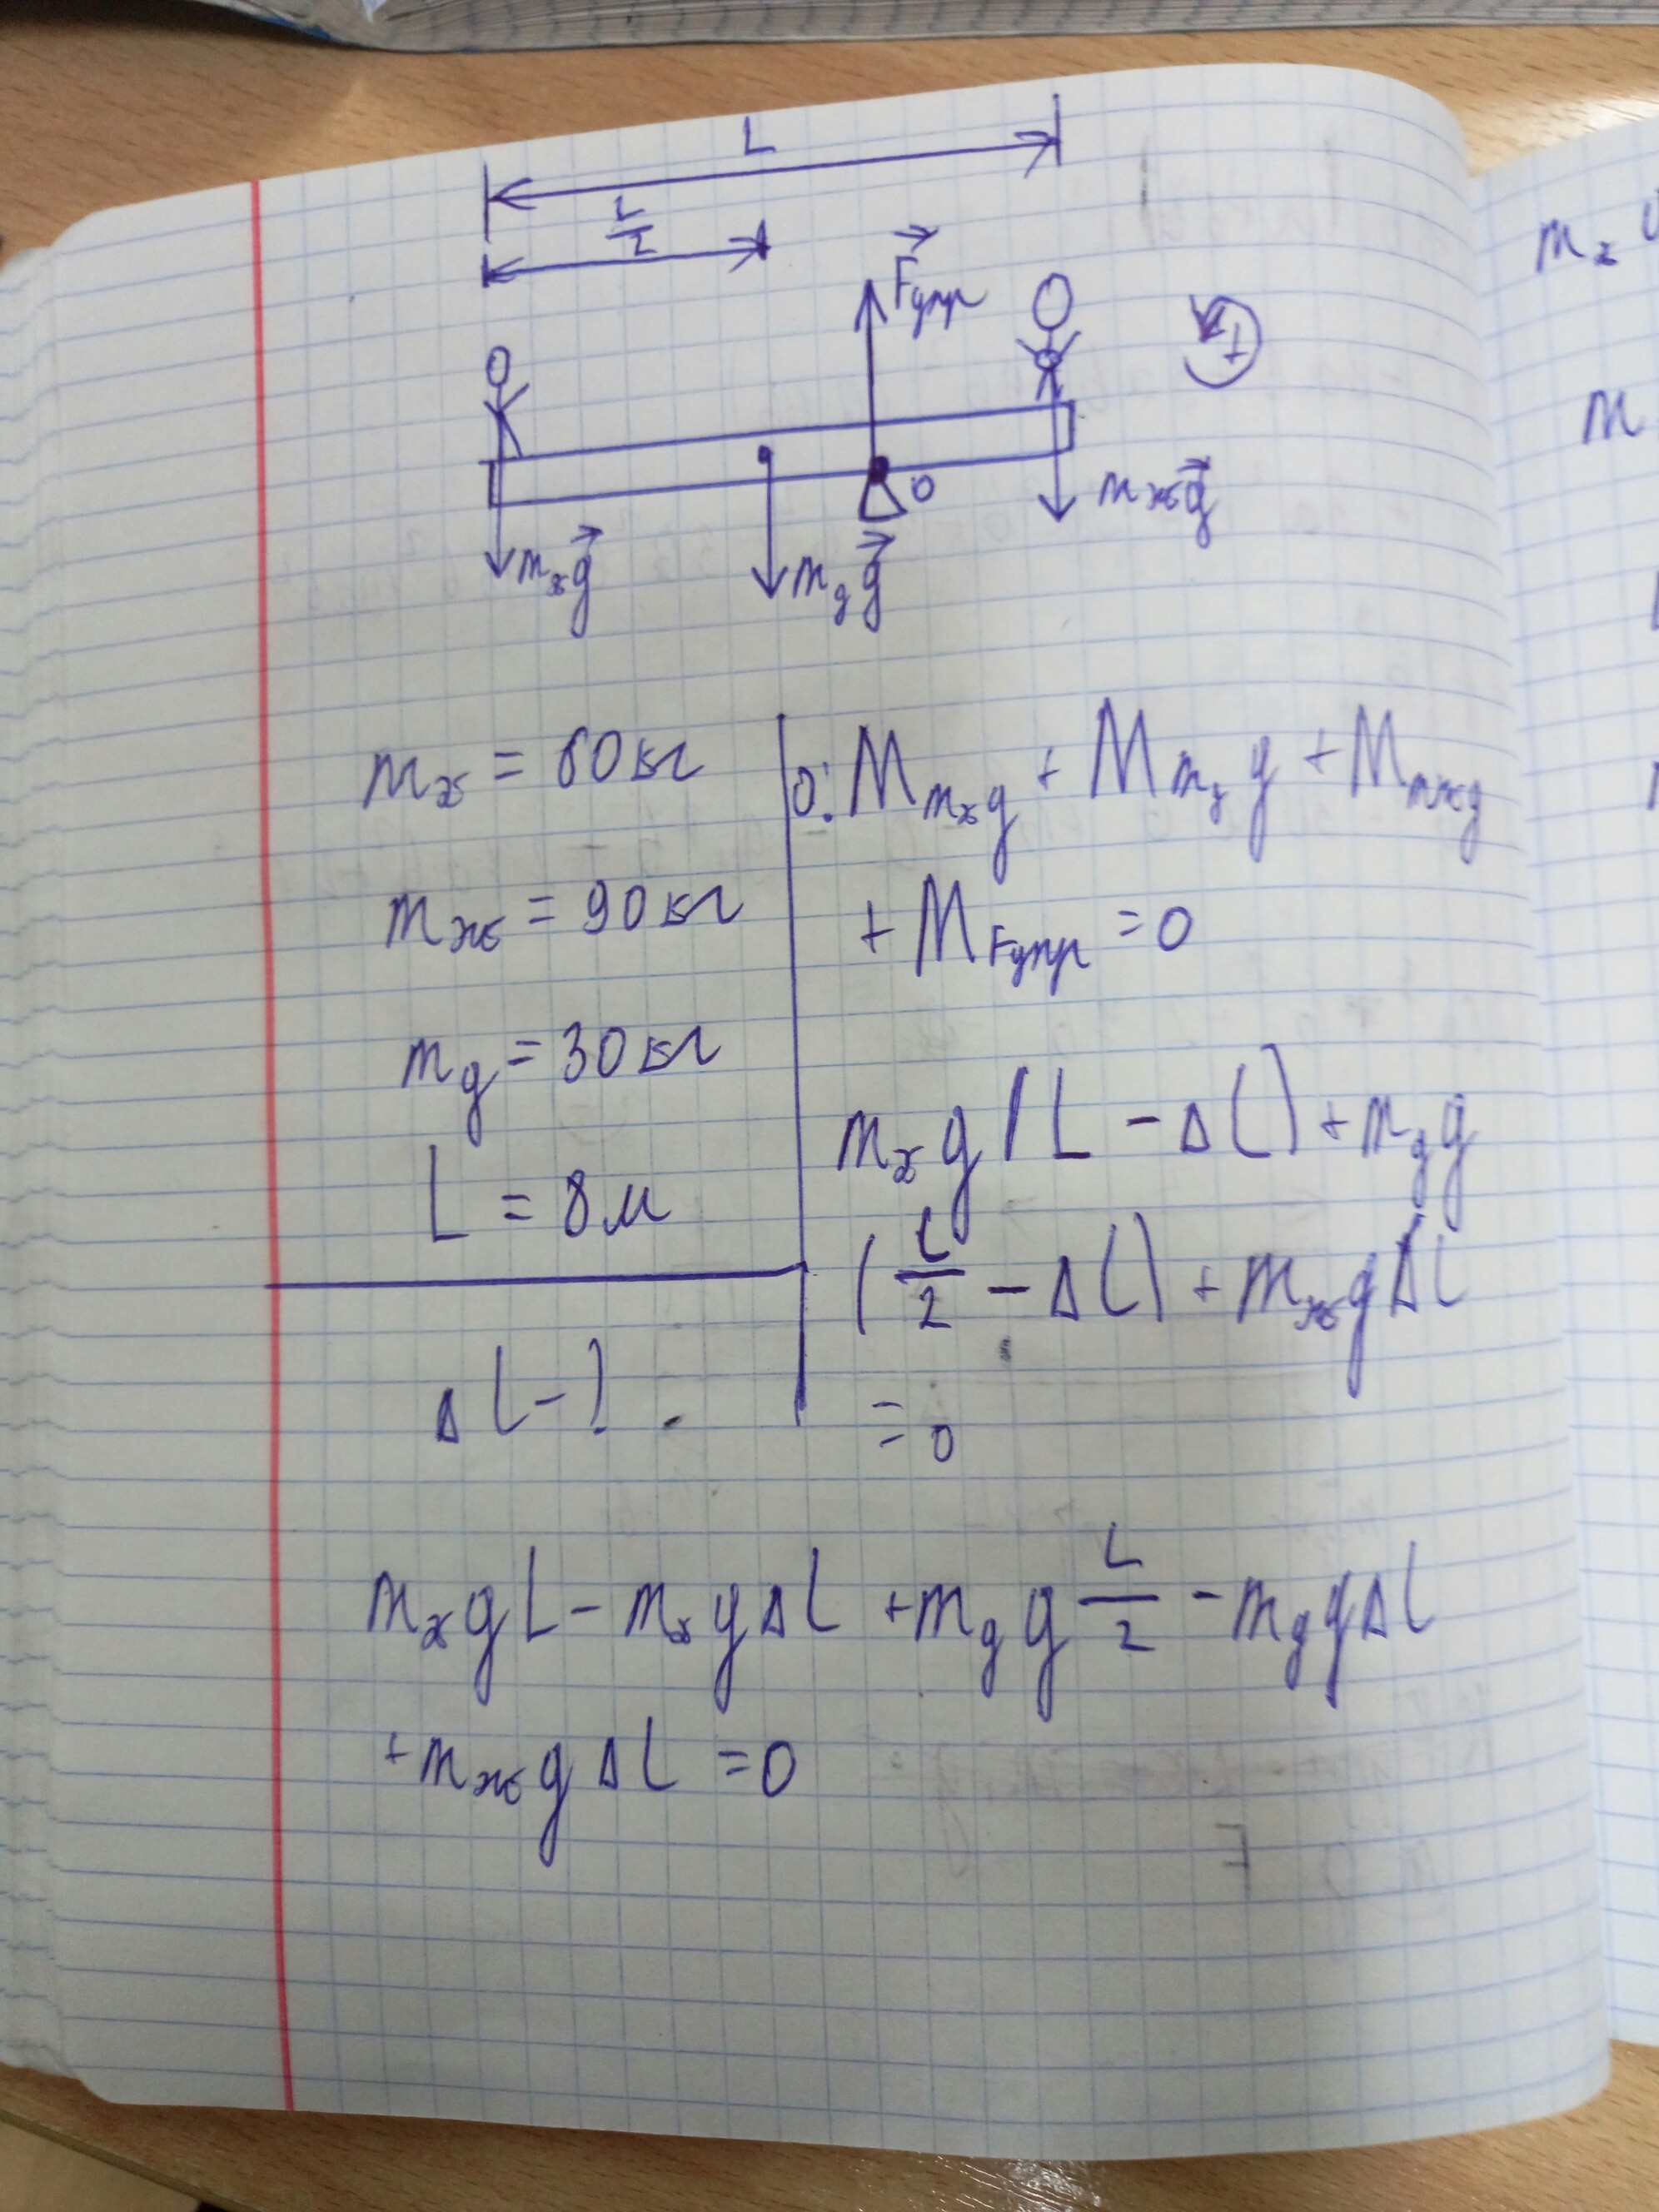 L
L/2
F⃗упр
0
mхg⃗
mдg⃗
mжg⃗
+
mх = 60кг
mж = 90кг
mд = 30кг
L = 8м
ΔL-?
0: Mmхg + Mmдg + Mmжg
+ MFупр = 0
mхg(L - ΔL) + mдg
(L/2 - ΔL) + mжgΔL
= 0
mхgL - mхgΔL + mдg L/2 - mдgΔL
+ mжgΔL = 0
m